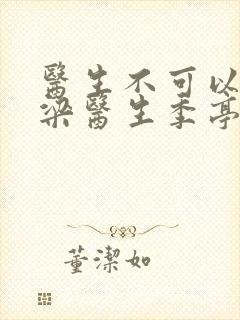 醫生不可以
梁醫生季亭
董潔如